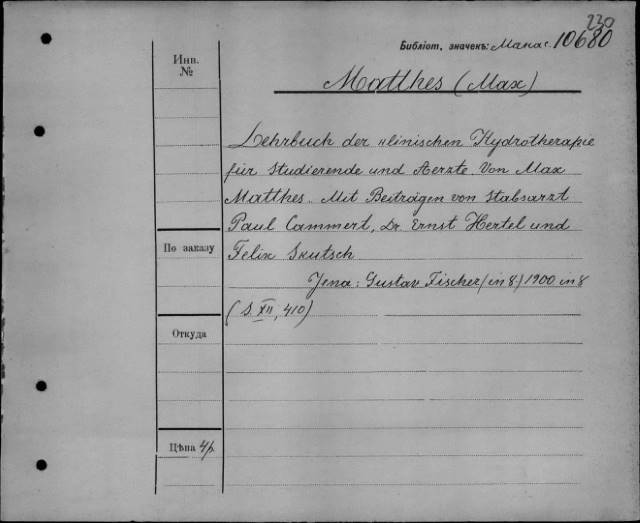 230
Библіот. значекъ: Манас. 10680
Инв.
№
Matthes (Max)
Lehrbuch der klinischen Hydrotherapie
für Studierende und Aerzte. Von Max
Matthes. Mit Beiträgen von Stabsarzt
Paul Cammert, Dr. Ernst Hertel und
По заказу
Felix Skutsch
Jena: Gustav Fischer (in 8.) 1900 in 8
(S. XII, 410)
Откуда
Цѣна 4р.